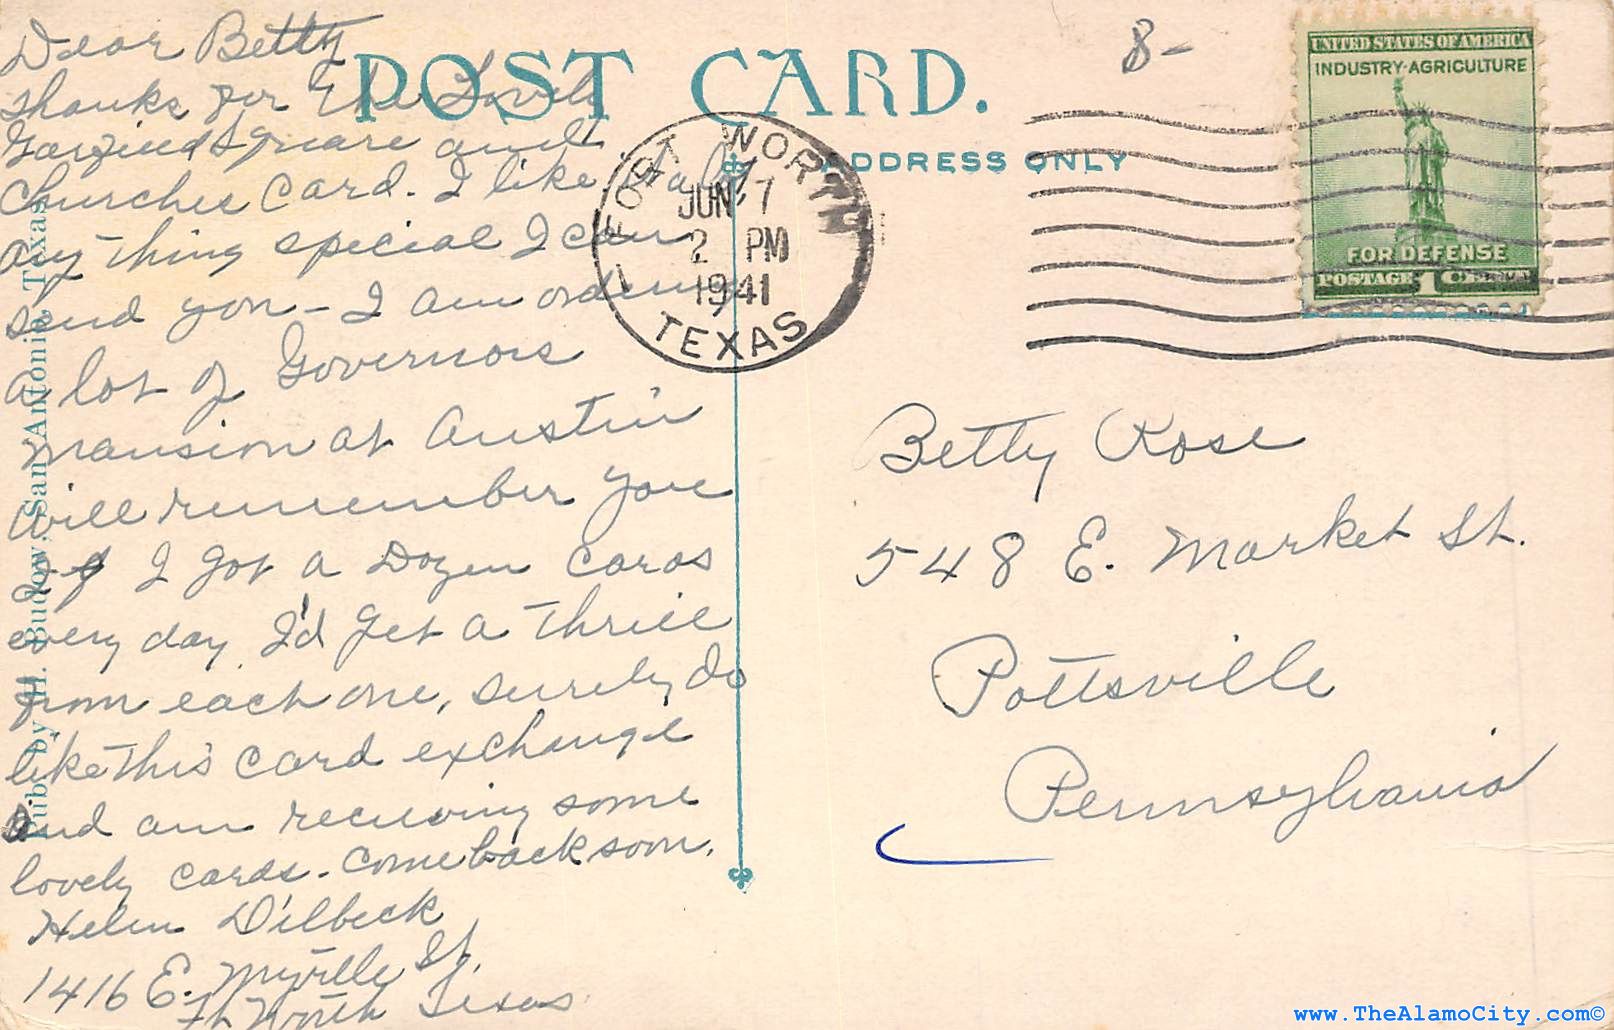 Dear Betty
Thanks for the Lovely
Garfield Square and
Churches Card. I like it a lot
any thing special I can
send you - I am ordering
a lot of Governors
Mansion at Austin
will remember you
If I got a Dozen cards
every day I'd get a thrill
from each one, surely do
like this card exchange
and am recieving some
lovely cards. Come back soon.
Helen Dilbeck
1416 E. Myrtle St.
Ft Worth Texas
Pub. by H. Budow, San Antonio, Texas.
POST CARD.
ADDRESS ONLY
8-
FORT WORTH
1
JUN 7
2 PM
1941
TEXAS
UNITED STATES OF AMERICA
INDUSTRY·AGRICULTURE
FOR DEFENSE
POSTAGE 1 CENT
Betty Rose
548 E. Market St.
Pottsville
Pennsylvania
www.TheAlamoCity.com©